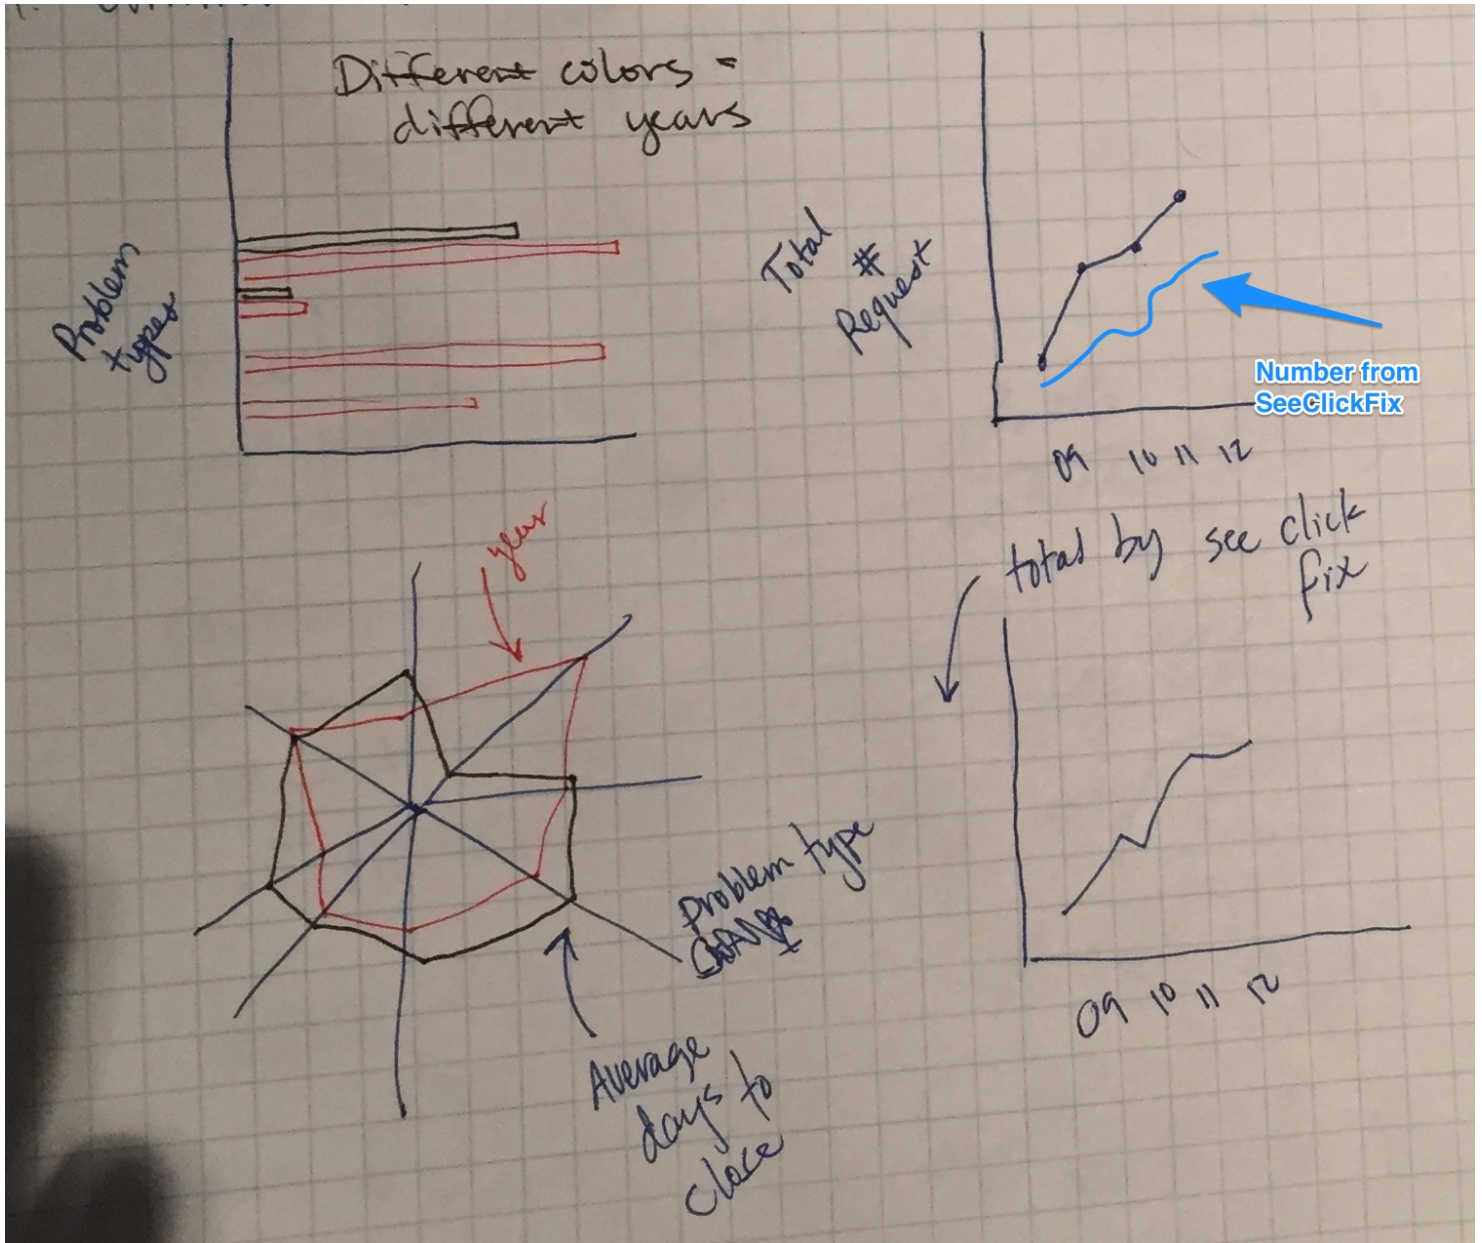 Different colors =
different years
Problem
types
Total
#
Request
Number from
SeeClickFix
09 10 11 12
year
total by see click
fix
Problem type
Average
days to
close
09 10 11 12